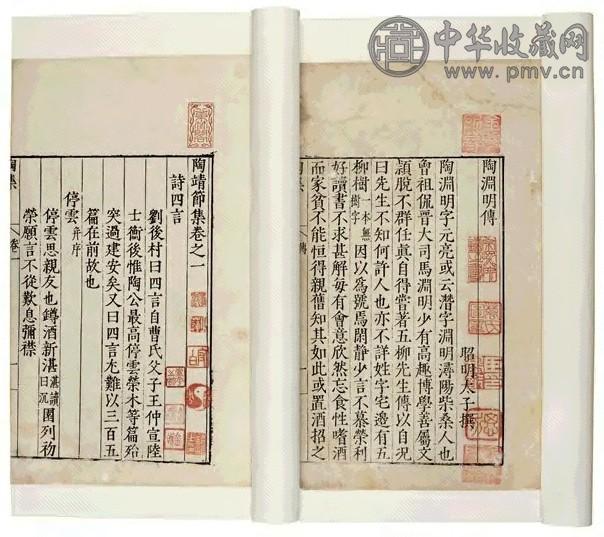 中华收藏网
www.pmv.cn
陶淵明傳
昭明太子撰
陶淵明字元亮或云潛字淵明潯陽柴桑人也
曾祖侃晉大司馬淵明少有高趣博學善屬文
頴脫不群任真自得嘗著五柳先生傳以自况
曰先生不知何許人也亦不詳姓字宅邊有五
柳樹一本無樹字因以爲號焉閑静少言不慕榮利
好讀書不求甚解每有會意欣然忘食性嗜酒
而家貧不能恒得親舊知其如此或置酒招之
陶靖節集卷之一
詩四言
劉後村曰四言自曹氏父子王仲宣陸
士衡後惟陶公最高停雲榮木等篇殆
突過建安矣又曰四言尤難以三百五
篇在前故也
停雲并序
停雲思親友也罇酒新湛湛讀曰沉園列初
榮願言不從歎息彌襟